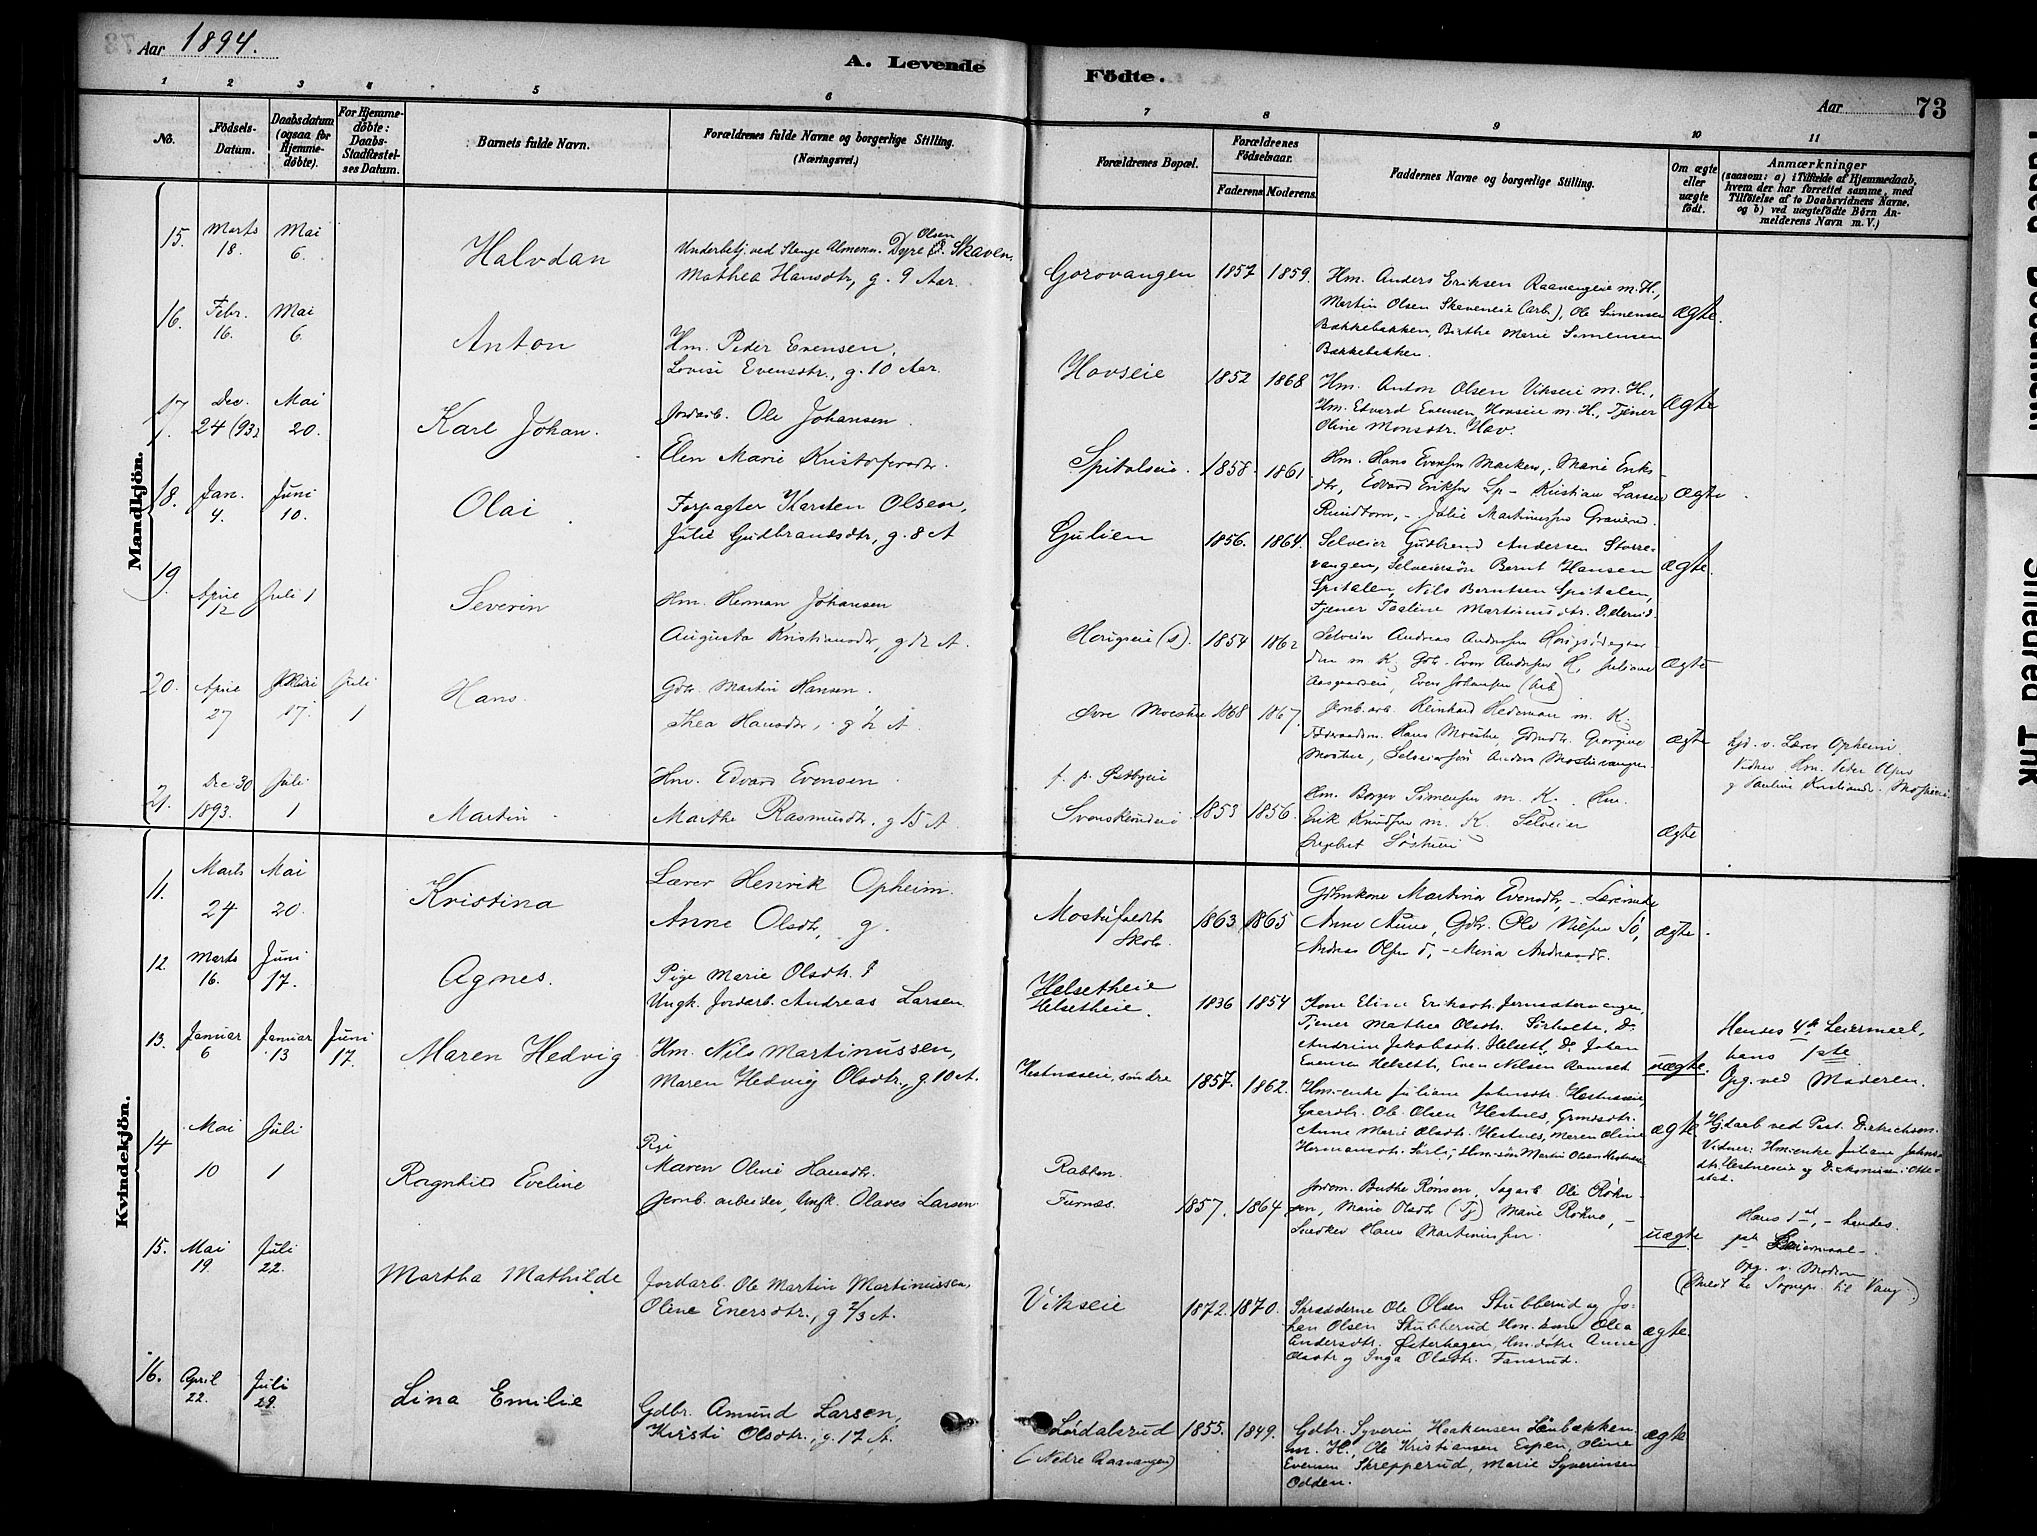 Aar 1894.
A. Levende Fødte.
Aar 73
1 2 3 4 5 6 7 8 9 10 11
No.
Fødsels-Datum.
Daabsdatum (ogsaa for Hjemmedøbte).
For Hjemmedøbte: Daabs-Stadfæstelses Datum.
Barnets fulde Navn.
Forældrenes fulde Navne og borgerlige Stilling.
(Næringsvei.)
Forældrenes Bopæl.
Forældrenes Fødselsaar.
Faderens. Moderens.
Faddernes Navne og borgerlige Stilling.
Om ægte eller uægte født.
Anmærkninger
(saasom: a) i Tilfælde af Hjemmedaab, hvem der har forrettet samme, med Tilføielse af to Daabsvidners Navne, og b) ved uægtefødte Børn Anmelderens Navn m. V.)
Mandkjön.
15. Marts 18. Mai 6. Halvdan
Underbetj. ved Stange Almenn. Dyre Olsen Skaven,
Mathea Hansdtr., g. 9 Aar.
Gorovangen 1857 1859.
Hm. Anders Eriksen Raavangeie m. H.,
Martin Olsen Skaveneie (arb.), Ole Simensen
Bakkebakken, Birthe Marie Simensen
Bakkebakken.
ægte.
16. Febr. 16. Mai 6. Anton
Hm. Peder Evensen,
Lovise Evensdtr., g. 10 Aar.
Hovseie 1852 1868
Hm. Anton Olsen Vikseie m. H.,
Hm. Edvard Evensen, Hovseie m. H., Tjener
Oline Monsdtr. Hov.
ægte
17. Dec. 24 (93) Mai 20. Karl Johan.
Jordarb. Ole Johansen
Elen Marie Kristofersdtr.
Spitalseie. 1858. 1861
Hm. Hans Evensen Marken, Marie Eriks-
dtr., Edvard Eriksen Sp - Kristian Larsen
Rundtom, -
ægte
18. Jan. 4. Juni 10. Olai
Forpagter Karsten Olsen,
Julie Gudbrandsdtr., g. 8 A
Gulien 1856. 1864.
Selveier Gudbrand Andersen Storre-
vangen, Selveiersøn Bernt Hansen
Spitalen, Nils Berntsen Spitalen,
Tjener Taaline Martinusdtr. Diserud.
ægte.
19. April 12 Juli 1 Severin
Hm. Herman Johansen
Augusta Kristiansdtr., g 12 A.
Horigseie (s). 1854 1862
Selveier Andreas Andersen
m K. Gdbr. Even Andersen H. Juliane
Aasgaardseie, Even Johansen (Arb)
ægte
20. April 27 17. Juli 1 Hans.
Gdbr. Martin Hansen.
Thea Hansdtr., g ½ A.
Øvre Moestue 1868 1867.
Jernb. arb. Reinhard Hedeman m. K.
Hans Moestue, Georgine
Mostue, Selveiersøn Anders Mostuvangen.
ægte
hjd. v. Lærer Opheim
Vidner Hm. Peter Olsen
g Pauline Kristiansdtr.
21. Dec 30 1893. Juli 1 Martin
Hm. Edvard Evensen.
Marthe Rasmusdtr., g 15 A.
f. p. Østbyeie
1853 1856.
Hm. Borger Simensen m. K. Hm.
Erik Knudsen m. K. Selveier
ægte
Kvindekjön.
11. Marts 24 Mai 20. Kristina
Lærer Henrik Opheim.
Anne Olsdtr., g.
Skole. 1863 1865
Gdmkone Martina Evensdtr., - Lærerinde
Anne Aune, Gdbr. Ole Nilsen Sö,
Andreas Olsen d, - Mina Andreasdtr.
ægte.
12. Marts 16. Juni 17. Agnes.
Pige Marie Olsdtr. &
Ungk. Jordarb. Andreas Larsen.
Helsetheie
Helsetheie. 1836 1854
Kone Eline Eriksdtr.
Tjener Mathea Olsdtr. Sørholte, Do
Andrine Jakobsdtr. Helseth, Do Johan
Evensen Helseth, Even Nilsen Ramset
uægte.
Hendes 4de Leiermaal,
hans 1ste
Opg. ved Moderen.
13. Januar 6 Januar 13 Juni 17. Maren Hedvig
Hm. Nils Martinussen,
Maren Hedvig Olsdtr., g. 10 A.
Hestnæseie, søndre 1857. 1862.
Hm-enke Juliane Johnsdtr. Hestnæseie,
Gaardbr. Ole Olsen Hestnes, Grmdsdtr.
Anne Marie Olsdtr. Hestnes, Maren Oline
Hermansdtr. Sørli, Hm-søn Martin Olsen Hestnæseie
ægte
Hjdaab ved Past. Dirichson.
Vidner: Hm-enke Juliane Johns-
dtr. Hestneseie og Otte-
stad.
14 Mai 10 Juli 1 Ragnhild Eveline
Pige
Maren Oline Hansdtr.
Jernb. arbeider, Ungk. Olaves Larsen.
Rabben.
Furnæs. 1857. 1864
Jordm. Berthe Rønsen, Sagarb Ole Røhn-
sen, Marie Olsdtr (Tj) Marie Røhne, -
Snedker Hans Martinusen
uægte
Hans 1st, - hendes
Leiermaal.
Opg. v. Modren
(Meldt til Sognepr. til Vang.)
15. Mai 19. Juli 22. Martha Mathilde
Jordarb. Ole Martin Martinussen,
Oline Enersdtr., g 2/3 A.
Vikseie 1872. 1870.
Skrædderne Ole Olsen Stubberud og Jo-
han Olsen Stubberud Hm. kone Olea
Andersdtr. Østerhagen, Hm. døtre Anne
Olsdtr og Inga Olsdtr. Fansrud.
ægte.
16. April 22. Juli 29. Lina Emilie
Gdbr. Amund Larsen,
Kirsti Olsdtr., g. 17 A.
Lordalsrud
(Nedre Raavangen) 1855. 1849.
Gdbr. Syverin Haakensen Lønbækken
m. H., Ole Kristiansen Espen, Oline
Evensen Skrepperud, Marie Syverinsen
Odden.
ægte